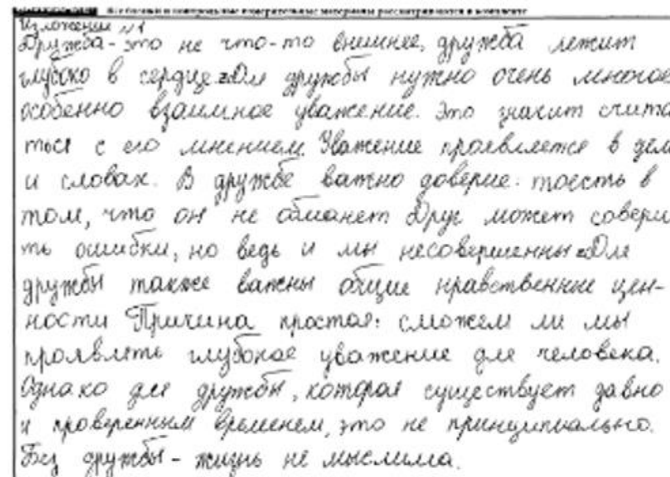 Все бланки и контрольные измерительные материалы рассматриваются в комплекте
Изложение №1
Дружба - это не что-то внешнее, дружба лежит
глубоко в сердце. Для дружбы нужно очень многое
особенно взаимное уважение. Это значит счита
ться с его мнением. Уважение проявляется в дела
и словах. В дружбе важно доверие: тоесть в
том, что он не обманет Друг может соверш
ть ошибки, но ведь и мы несовершенны. Для
дружбы также важны общие нравственные цен-
ности Причина простая: сможем ли мы
проявлять глубокое уважение для человека.
Однако для дружбы, которая существует давно
и проверенным временем, это не принципиально.
Без дружбы - жизнь не мыслима.